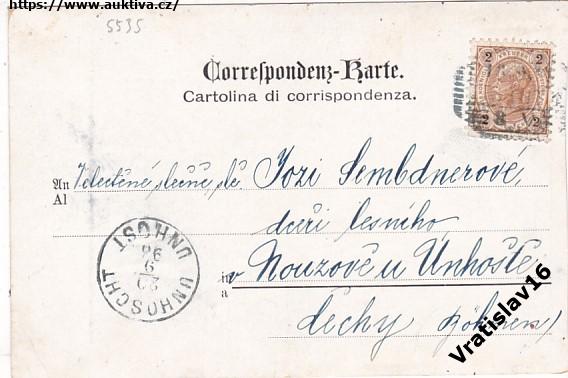 https://www.auktiva.cz/
5535
2 2
Correspondenz-Karte.
Cartolina di corrispondenza.
2 2
An Velectěné slečně, sl. Jozi Sembdnerové,
Al
dceři lesního
in v Nouzově u Unhoště
a
Čechy (Böhmen)
UNHOSCHT UNHOŠT
Vratislav16